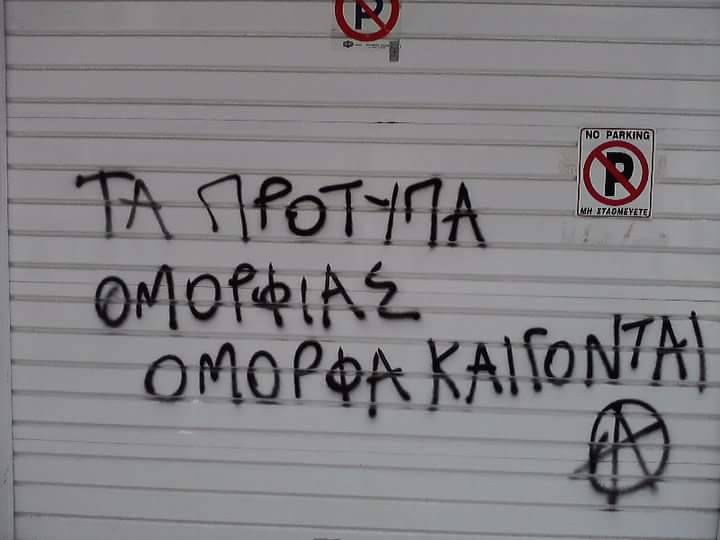 NO PARKING
P
ΜΗ ΣΤΑΘΜΕΥΕΤΕ
ΤΑ ΠΡΟΤΥΠΑ
ΟΜΟΡΦΙΑΣ
ΟΜΟΡΦΑ ΚΑΙΓΟΝΤΑΙ
A